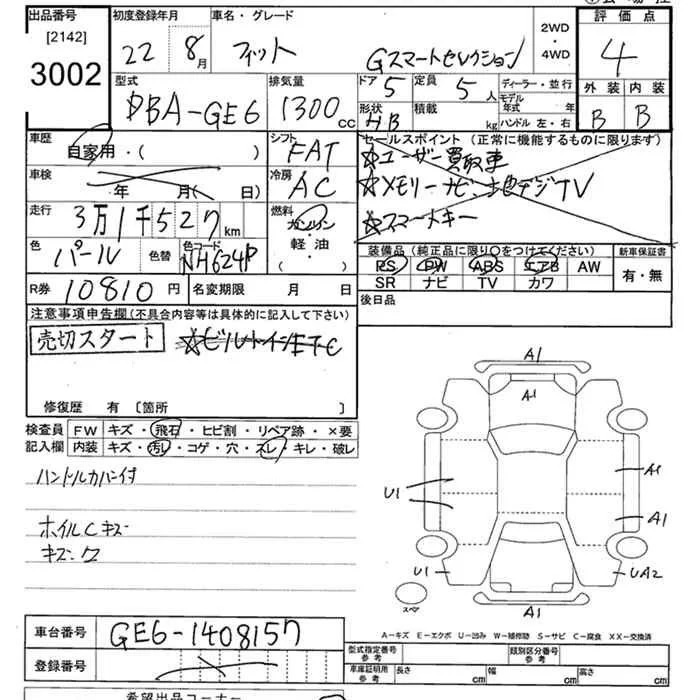 出品番号 初度登録年月 車名・グレード 評価点
[2142]
3002
22 8月 フィット Gスマートセレクション 2WD・4WD 4
型式 排気量 ドア 5 定員 5人 ディーラー・並行 外装 内装
DBA-GE6 1300cc 形状 HB 積載 kg モデル年式 年 ハンドル 左・右 B B
車歴 シフト セールスポイント(正常に機能するものに限ります)
自家用・( ) FAT ☆ユーザー買取車
車検 年 月( 日) 冷房 AC ☆メモリーナビ、地デジTV
走行 3万1千527km 燃料 ガソリン・軽・油( ) ☆スマートキー
色 パール 色替 色コード NH624P
装備品(純正品に限り〇をつけてください) 新車保証書
PS PW ABS エアB AW 有・無
SR ナビ TV カワ
R券 10810円 名変期限 月 日 後日品
注意事項申告欄(不具合内容等は具体的に記入して下さい)
売切スタート ☆ビルトインETC
修復歴 有 〔箇所 〕
検査員記入欄 FW キズ・飛石・ヒビ割・リペア跡・×要
内装 キズ・汚レ・コゲ・穴・スレ・キレ・破レ
ハンドルカバー付
ホイルCキズ
キズ・ワ
A1
A1
A1
U1
A1
U1
UA2
A1
スペア
A-キズ E-エクボ U-凹み W-補修跡 S-サビ C-腐食 XX-交換済
車台番号 GE6-1408157
登録番号
型式指定番号 参考 類別区分番号 参考
車庫証明用 参考 長さ cm 幅 cm 高さ cm
希望出品コーナー